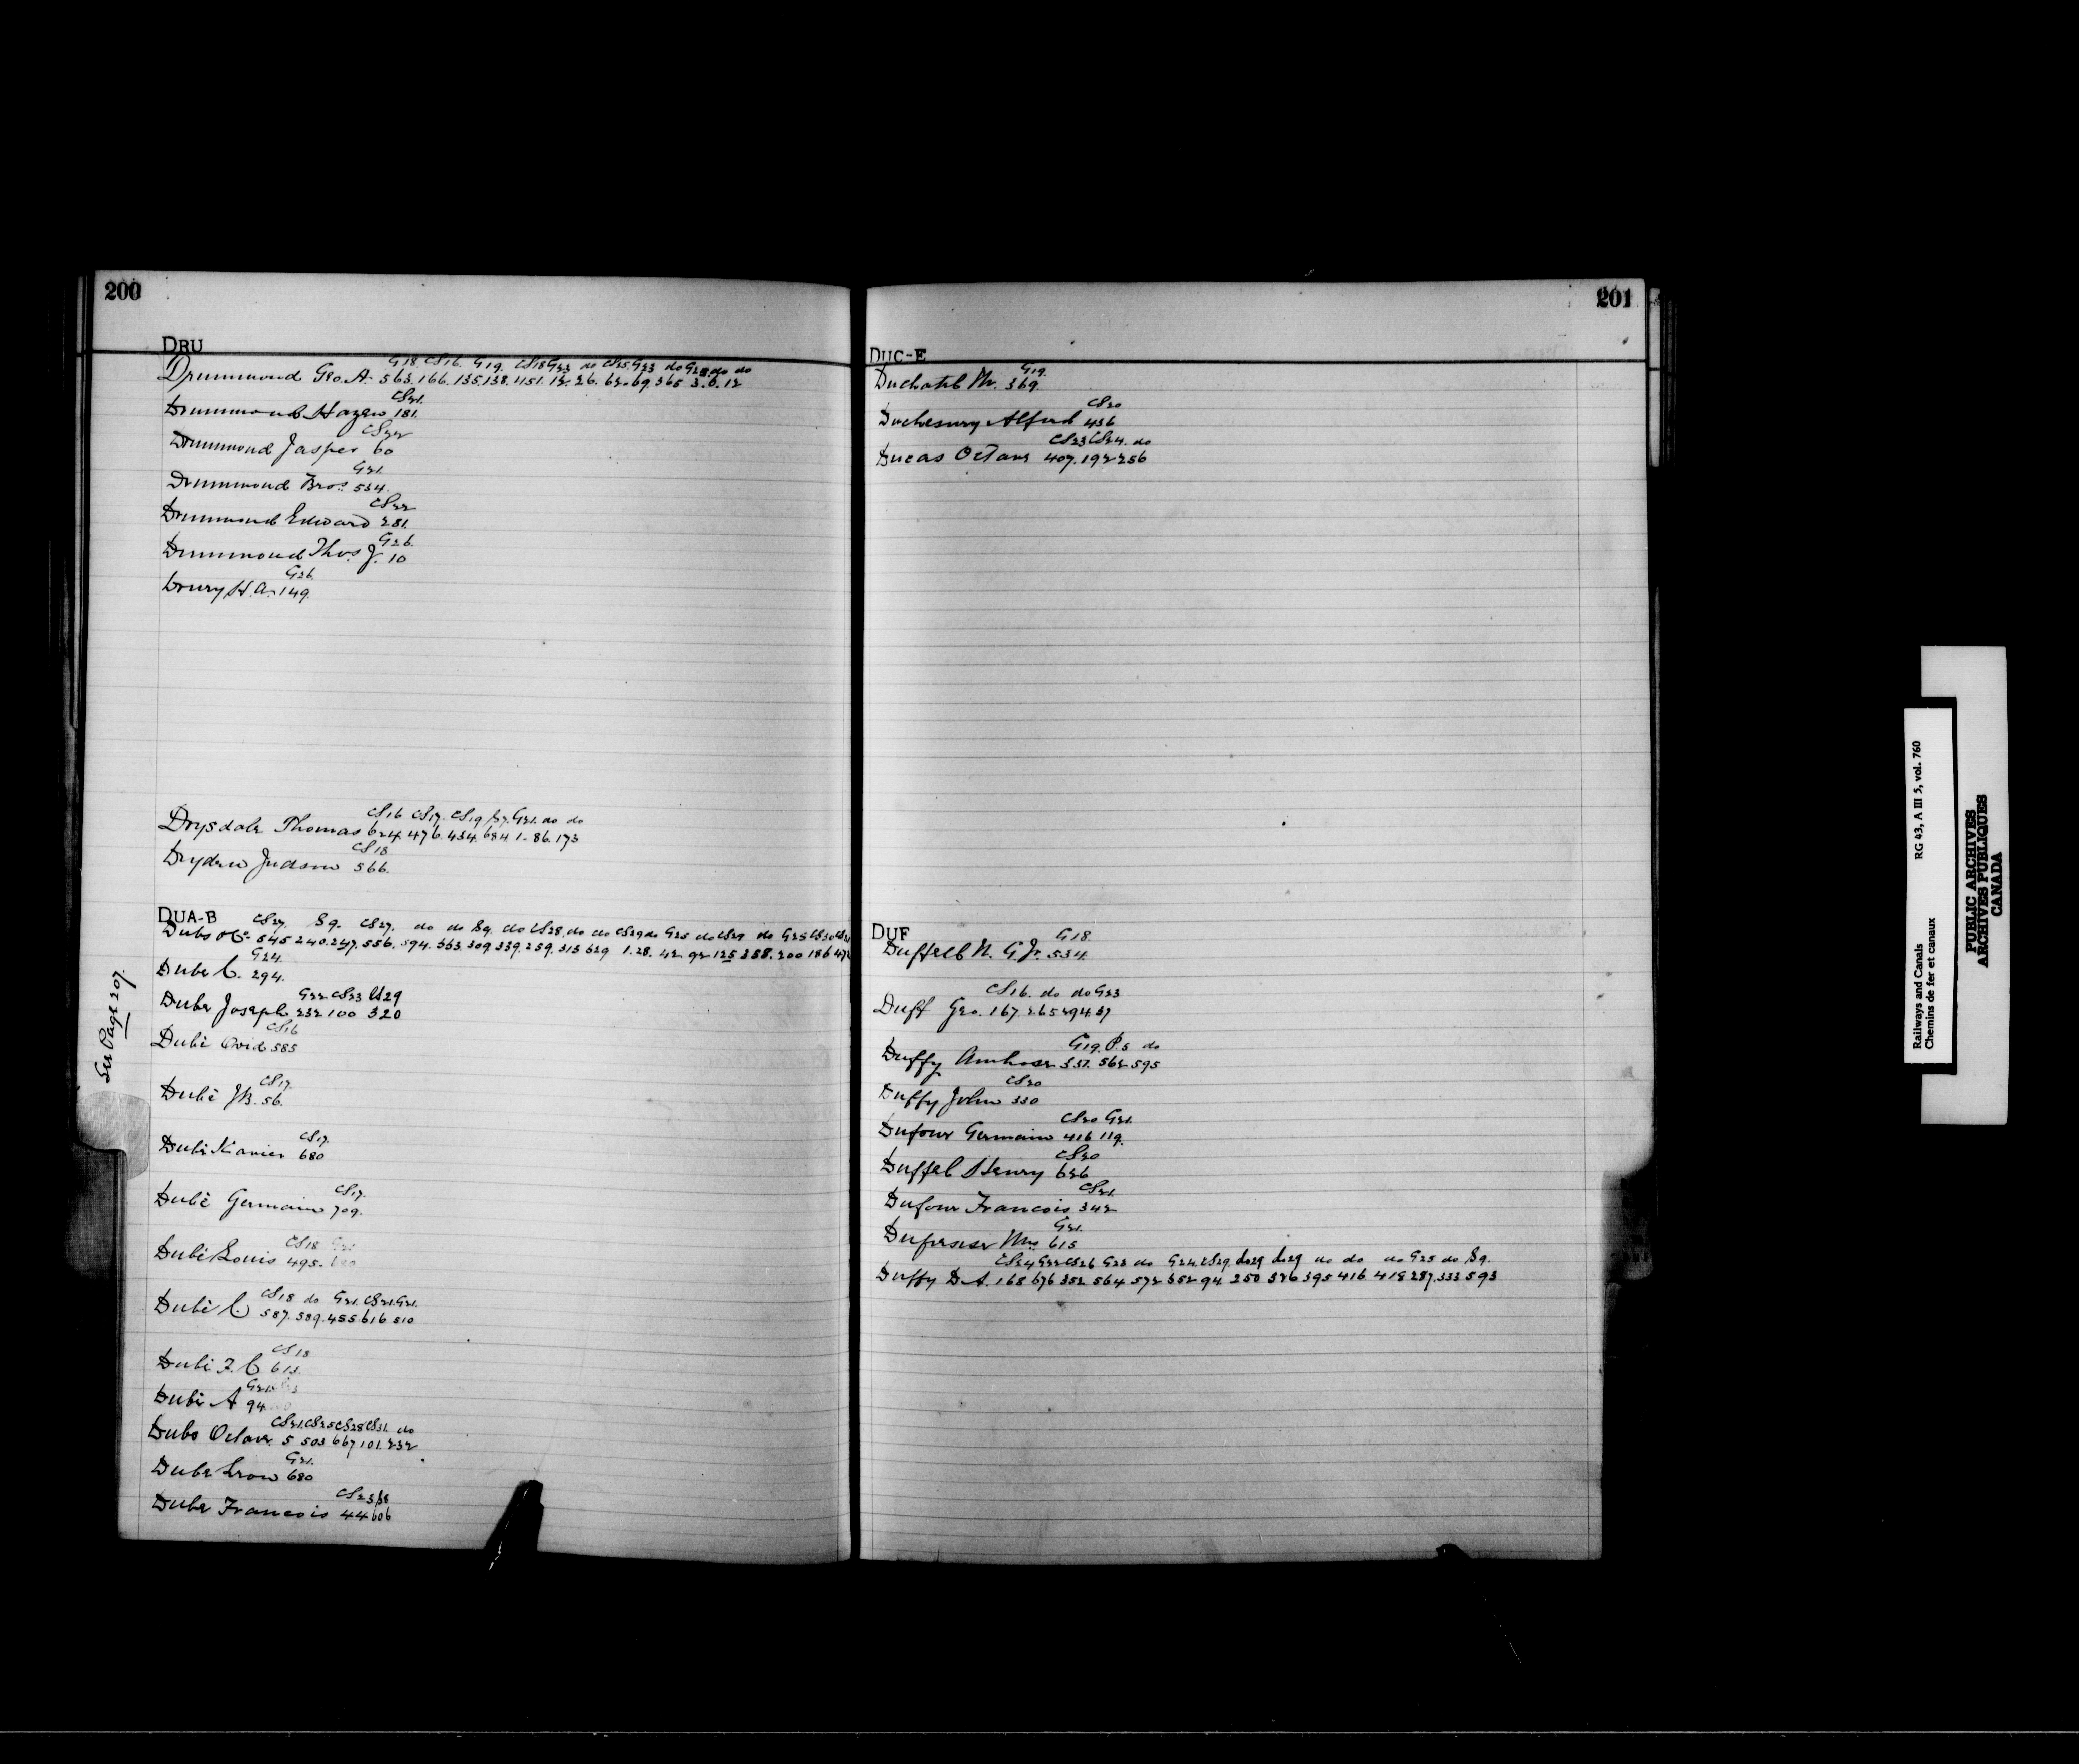 200
DRU
G18. CS16. G19. CS18 G23 do CS25. G23 do G28 do do
Drummond Geo. A. 563. 166. 135. 138. 1151. 12. 26. 62. 69. 365 3. 6. 12
CS21.
Drummond Hazen 181.
CS22
Drummond Jasper 60
G21.
Drummond Bros. 534.
CS22
Drummond Edward 281.
G26.
Drummond Thos. J. 10
G26.
Drury H. A. 149.
CS16 CS17. CS19 G21. do do
Drysdale Thomas 624. 476. 434. 684 1. 86. 173
CS18
Dryden Judson 566.
DUA-B
CS27. S9. CS27. do do S9. do CS28. do do CS29 do G25 do CS29 do G25 CS30
545 240. 247. 556. 594. 563 309 339. 259. 313 629 1. 28. 42 92 125 358. 200 186
G24.
Dube C. 294.
G22 CS23 CS29
Dube Joseph 232 100 320
CS16
Dubé Ovid 585
CS17.
Dubé J.B. 56.
CS17.
Dubé Xavier 680
CS17.
Dubé Germain 709.
CS18
Dubé Louis 495.
CS18 do G21. CS21. G21.
Dubé C 587. 589. 455 616 510
CS18
Dubé F. C 613.
G21.
Dubé A 94
CS21. CS25 CS28 CS31. do
Dubé Octave 5 503 667 101. 232
G21.
Dube Leon 680
CS23
Dube Francois 44 606
See Page 207.
201
DUC-E
G19.
Duchatel M. 369.
CS20
Duchesnay Alfred 436
CS23 CS24. do
Ducas Octave 407. 192 256
DUF
G18.
Duffell N. G. Jr. 534.
CS16. do do G23
Duff Geo. 167. 265 294. 37
G19. P.5 do
Duffy Ambrose 351. 562 595
CS20
Duffy John 330
CS20 G21.
Dufour Germain 416 119.
CS20
Duffel Henry 626
CS21.
Dufour Francois 342
G21.
Mrs 615
CS24 G22 CS26 G23 do G24. CS29. do29 do29 do do do G25 do S9.
Duffy D. A. 168 676 352 564 572 352 94. 250 326 395 416. 418 287. 333 593
Railways and Canals RG 43, A III 5, vol. 760
Chemins de fer et canaux
PUBLIC ARCHIVES
ARCHIVES PUBLIQUES
CANADA